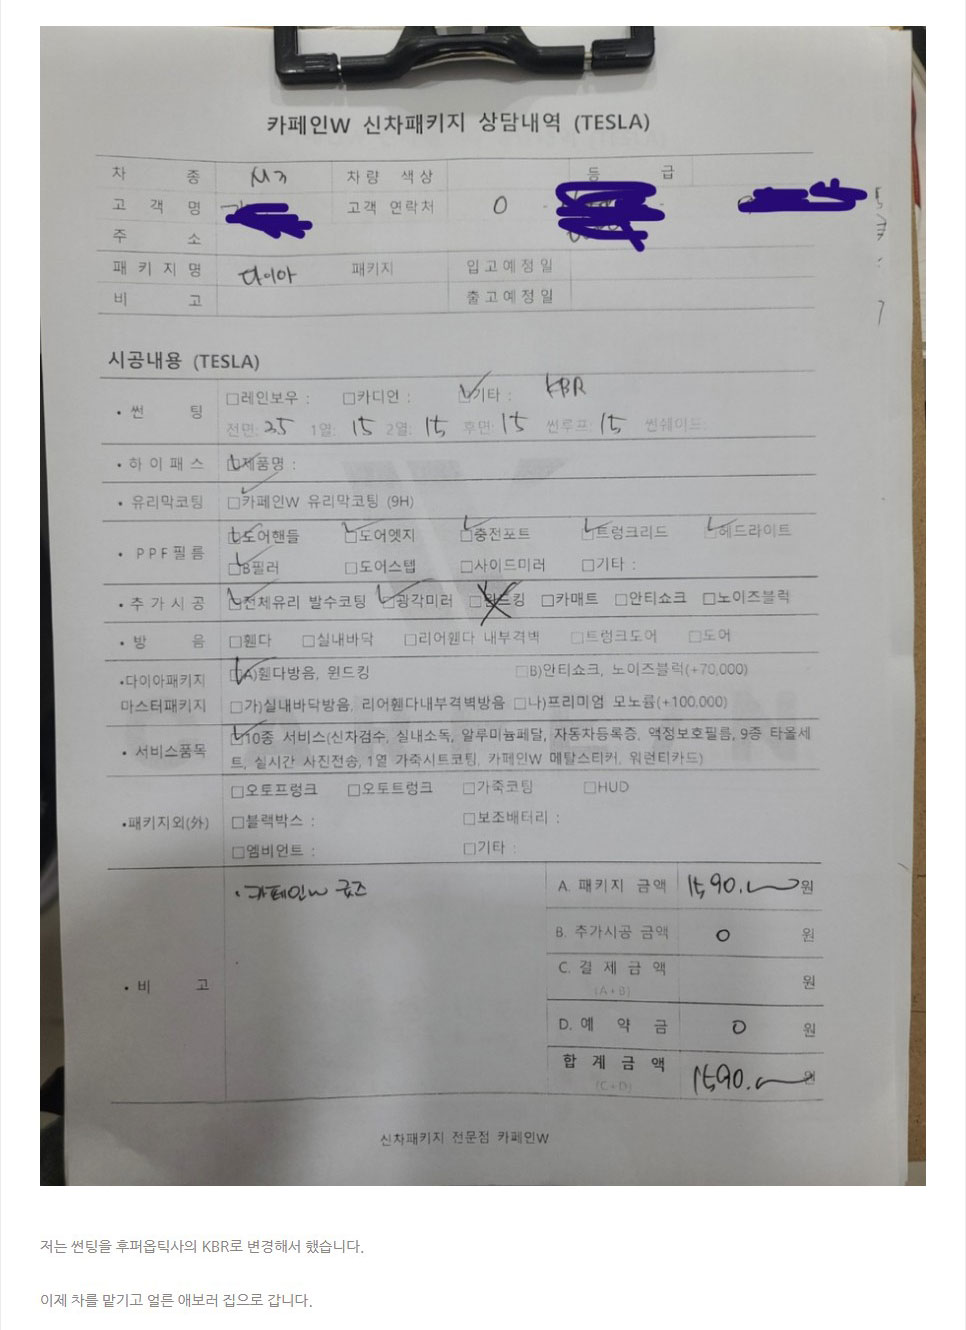 카페인W 신차패키지 상담내역 (TESLA)
차 종 M3 차량 색상 등 급
고 객 명 고객 연락처 0 - -
주 소
패 키 지 명 다이아 패키지 입고예정일
비 고 출고예정일
시공내용 (TESLA)
• 썬 팅 □레인보우 : □카디언 : □기타 : KBR
전면: 35 1열: 15 2열: 15 후면: 15 썬루프: 15 썬쉐이드:
• 하이패스 □제품명 :
• 유리막코팅 □카페인W 유리막코팅 (9H)
• PPF필름 □도어핸들 □도어엣지 □충전포트 □트렁크리드 □헤드라이트
□B필러 □도어스텝 □사이드미러 □기타 :
• 추가시공 □전체유리 발수코팅 □광각미러 □윈드킹 □카매트 □안티쇼크 □노이즈블럭
• 방 음 □휀다 □실내바닥 □리어휀다 내부격벽 □트렁크도어 □도어
•다이아패키지 □A)휀다방음, 윈드킹 □B)안티쇼크, 노이즈블럭(+70,000)
마스터패키지 □가)실내바닥방음, 리어휀다내부격벽방음 □나)프리미엄 모노륨(+100,000)
• 서비스품목 □10종 서비스(신차검수, 실내소독, 알루미늄페달, 자동차등록증, 액정보호필름, 9종 타올세
트, 실시간 사진전송, 1열 가죽시트코팅, 카페인W 메탈스티커, 워런티카드)
•패키지외(外) □오토프렁크 □오토트렁크 □가죽코팅 □HUD
□블랙박스 : □보조배터리 :
□엠비언트 : □기타 :
• 비 고 • 카페인W 굿즈
A. 패키지 금액 1,590. 원
B. 추가시공 금액 0 원
C. 결 제 금 액 원
(A+B)
D. 예 약 금 0 원
합 계 금 액 1,590. 원
(C+D)
신차패키지 전문점 카페인W
저는 썬팅을 후퍼옵틱사의 KBR로 변경해서 했습니다.
이제 차를 맡기고 얼른 애보러 집으로 갑니다.